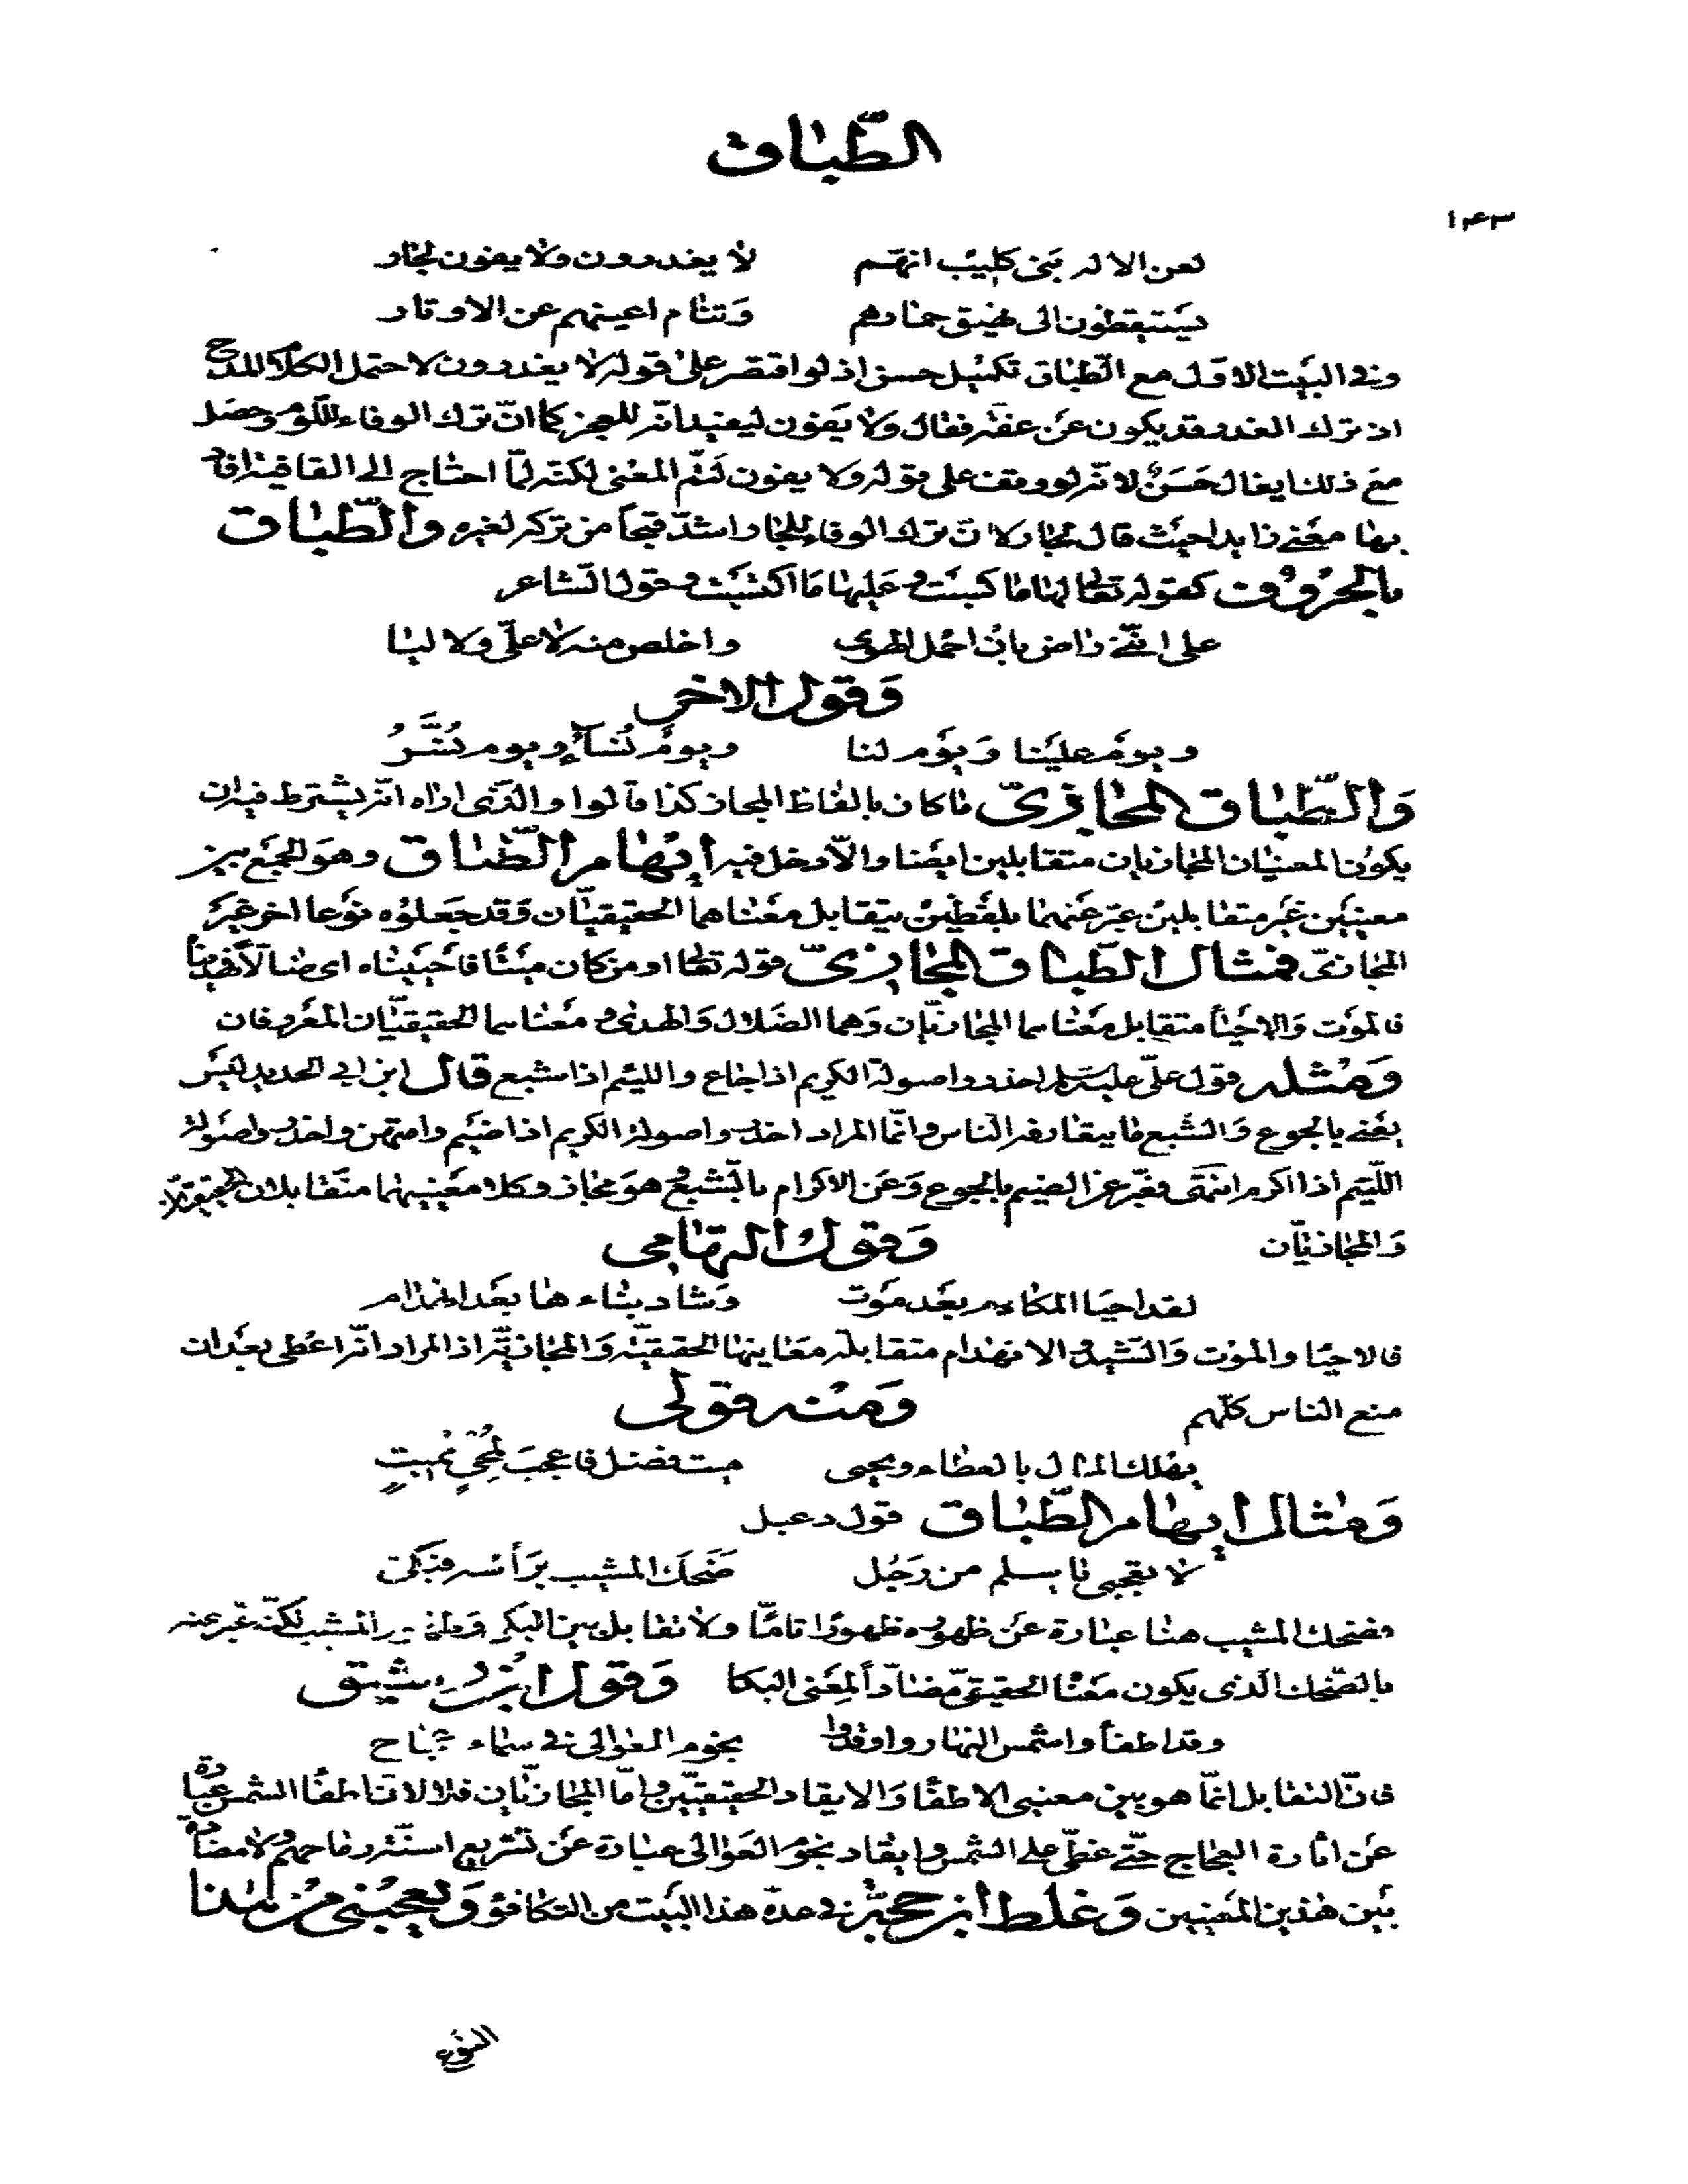 الطّباق
١٤٣
لعن الاله بَني كليب انهّم لا يغدرون ولا يفون لجار
يستيقظون الى نهيق حمارهم وَتنام اعينهم عن الاوتار
وفي البيت الاوّل مع الطّباق تكميل حسن اذ لو اقتصر على قوله لا يغدرون لاحتمل الكلام المدح
اذ ترك الغدر قد يكون عن عفّة فقال وَلا يَفون ليفيد انّه للعجز كما انّ ترك الوفاء للّؤم وحصَل
مع ذلك ايغال حَسَن لانّه لو وقف على قوله ولا يفون لتمّ المعنى لكنّه لمّا احتاج الى القافية افاد
بها معنى زايدا حيث قال لجار لانّ ترك الوفاء للجار اشدّ قبحاً من تركه لغيره والطّباق
بالحُرُوف كقوله تعالى لها ما كسبت وعَليها مَا اكتسَبت وقول الشاعر
على انّني راض بان احمل الهوى واخلص منه لا علَيّ ولا ليا
وَقول الاخر
ويومٌ علينا وَيوَم لنا ويومٌ نُساءُ ويوم نُسَرُّ
وَالطّباق المجازيّ ما كان بالفاظ المجاز كذا قالوا والذّى اراه انّه يشترط فيه ان
يكون المعنيان المجازيان متقابلين ايضا والّا دخل فيه ايهام الطّباق وهو الجمع بين
معنيين غير متقابلين عبّر عنهما بلفظين يتقابل معناهما الحقيقيّان وَقد جعَلوُه نوَعا اخر غير
المجازىّ فمثال الطّباق المجازيّ قوله تعالى او من كان ميتا فاحييناه اى ضالّا فهديناه
فالموت وَالاحيا متقابل معناهما المجازيّان وَهما الضلال وَالهدى ومعناهما الحقيقيّان المعروفان
وَمثله قول علىّ عليه السلم احذروا صولة الكريم اذا جاع والليئم اذا شبع قال ابن ابي الحديد ليس
يعنى بالجوع وَالشبع ما يتعارفه الناس وانّما المراد احذروا صولة الكريم اذا ضيم وامتهن واحذروا صولة
اللّئيم اذا اكرم انتهى فعبّر عن الضيم بالجوع وَعَن الاكرام بالشّبع وهو مجاز وكلا معنييهما متقابلان الحقيقيّان
وَالمجازيّان وَقول التهامى
لقد احيَا المكارم بعَد مَوت وَشاد بناءها بعَد انهدام
فالاحيا والموت وَالتشييد والانهدام متقابلة معَانيها الحقيقيّة وَالمجازيّة اذ المراد انّه اعطى بعد ان
منع الناس كلّهم وَمنه قولى
يهلك المال بالعطاء ويحيى ميت فضل فاعجَب لمُحيٍ مُميتٍ
وَمثال ايهام الطّباق قول دعبل
لا تعجبى يا سلم من رَجُل ضَحكَ المشيب برَأسه فبَكى
فضحك المشيب هنا عبارة عَن ظهوره ظهورًا تامّا ولا تقابل بين البكا وَظهور المشيب لكنّه عبّر عنه
بالضّحك الّذى يكون معَناه الحقيقىّ مضادّاً لمعَنى البكا وَقول ابن رشيق
وقد اطفأوا شمس النهار واوقدوا نجوم العوالى في سماء عجاج
فانّ التقابل انّما هو بين معنيى الاطفا وَالايقاد الحقيقيّين وامّا المجازيّان فلا لانّ اطفا الشمس عبارة
عَن اثارة العجاج حتّى غطّى على الشمس وايقاد نجوم العَوالى عبارة عَن تشريع اسنّة رماحهم ولا مضادّة
بَين هذين المعَنيين وَغلط ابن حجّة في عدّه هذا البَيت من التكافؤ وَيعجبنى من هذا
النوع